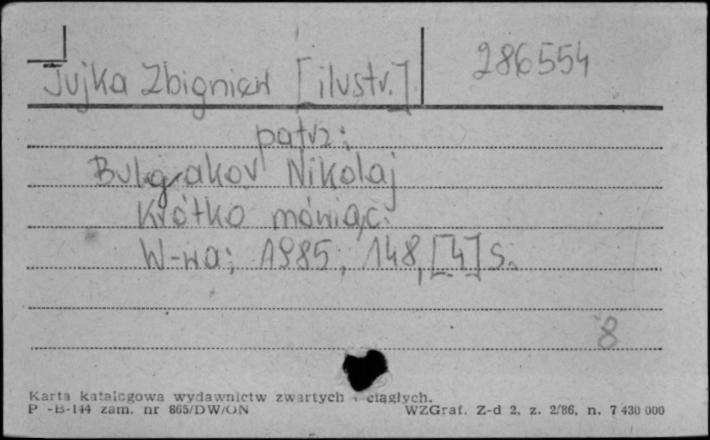 Jujka Zbigniew [ilustr.] 286554
patrz:
Bułgakov Nikolaj
Krótko mówiąc.
W-wa; 1985; 148, [4] s.
8
Karta katalogowa wydawnictw zwartych i ciągłych.
P -B-144 zam. nr 865/DW/ON WZGraf. Z-d 2, z. 2/86, n. 7 430 000